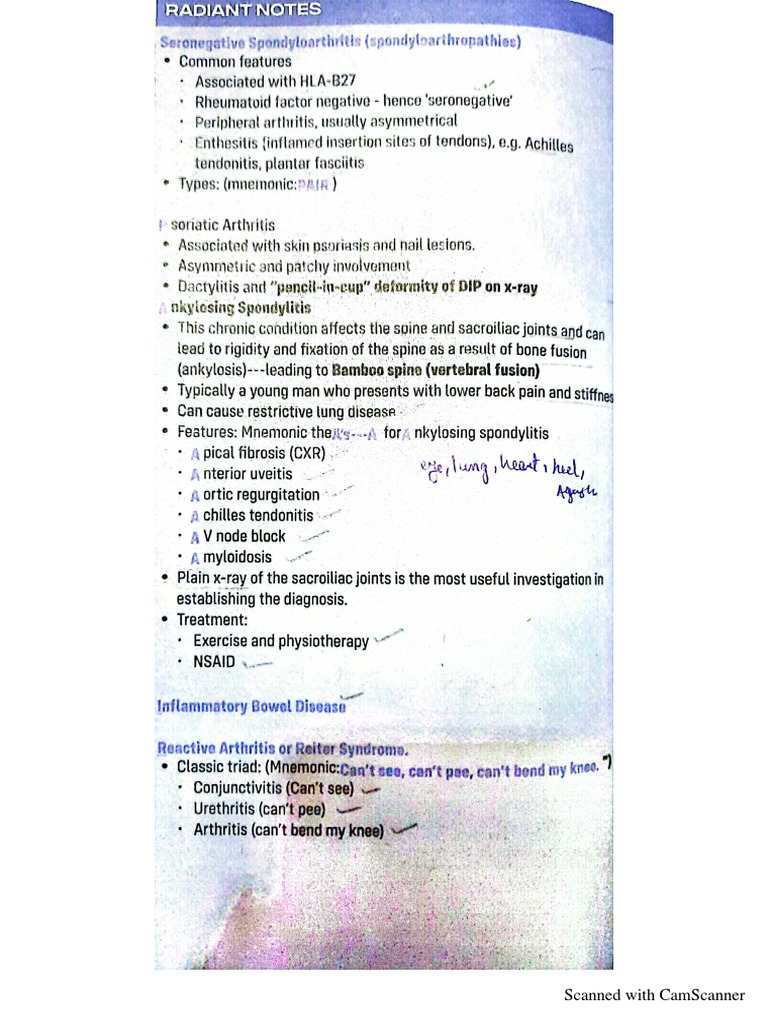 RADIANT NOTES
Seronegative Spondyloarthritis (spondyloarthropathies)
• Common features
· Associated with HLA-B27
· Rheumatoid factor negative - hence 'seronegative'
· Peripheral arthritis, usually asymmetrical
· Enthesitis (inflamed insertion sites of tendons), e.g. Achilles
tendonitis, plantar fasciitis
• Types: (mnemonic:PAIR )
P soriatic Arthritis
• Associated with skin psoriasis and nail lesions.
• Asymmetric and patchy involvement
• Dactylitis and "pencil-in-cup" deformity of DIP on x-ray
A nkylosing Spondylitis
• This chronic condition affects the spine and sacroiliac joints and can
lead to rigidity and fixation of the spine as a result of bone fusion
(ankylosis)---leading to Bamboo spine (vertebral fusion)
• Typically a young man who presents with lower back pain and stiffnes
• Can cause restrictive lung disease
• Features: Mnemonic the A's---A for A nkylosing spondylitis
· A pical fibrosis (CXR)
· A nterior uveitis
eye, lung, heart, heel,
· A ortic regurgitation
· A chilles tendonitis
· A V node block
· A myloidosis
• Plain x-ray of the sacroiliac joints is the most useful investigation in
establishing the diagnosis.
• Treatment:
· Exercise and physiotherapy
· NSAID
Inflammatory Bowel Disease
Reactive Arthritis or Reiter Syndrome.
• Classic triad: (Mnemonic:Can't see, can't pee, can't bend my knee. ")
· Conjunctivitis (Can't see)
· Urethritis (can't pee)
· Arthritis (can't bend my knee)
Scanned with CamScanner